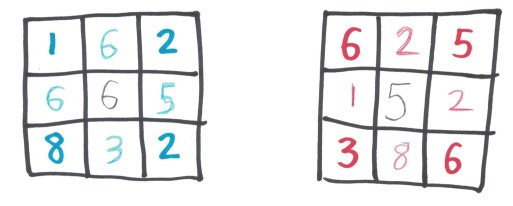 1 6 2
6 6 5
8 3 2
6 2 5
1 5 2
3 8 6